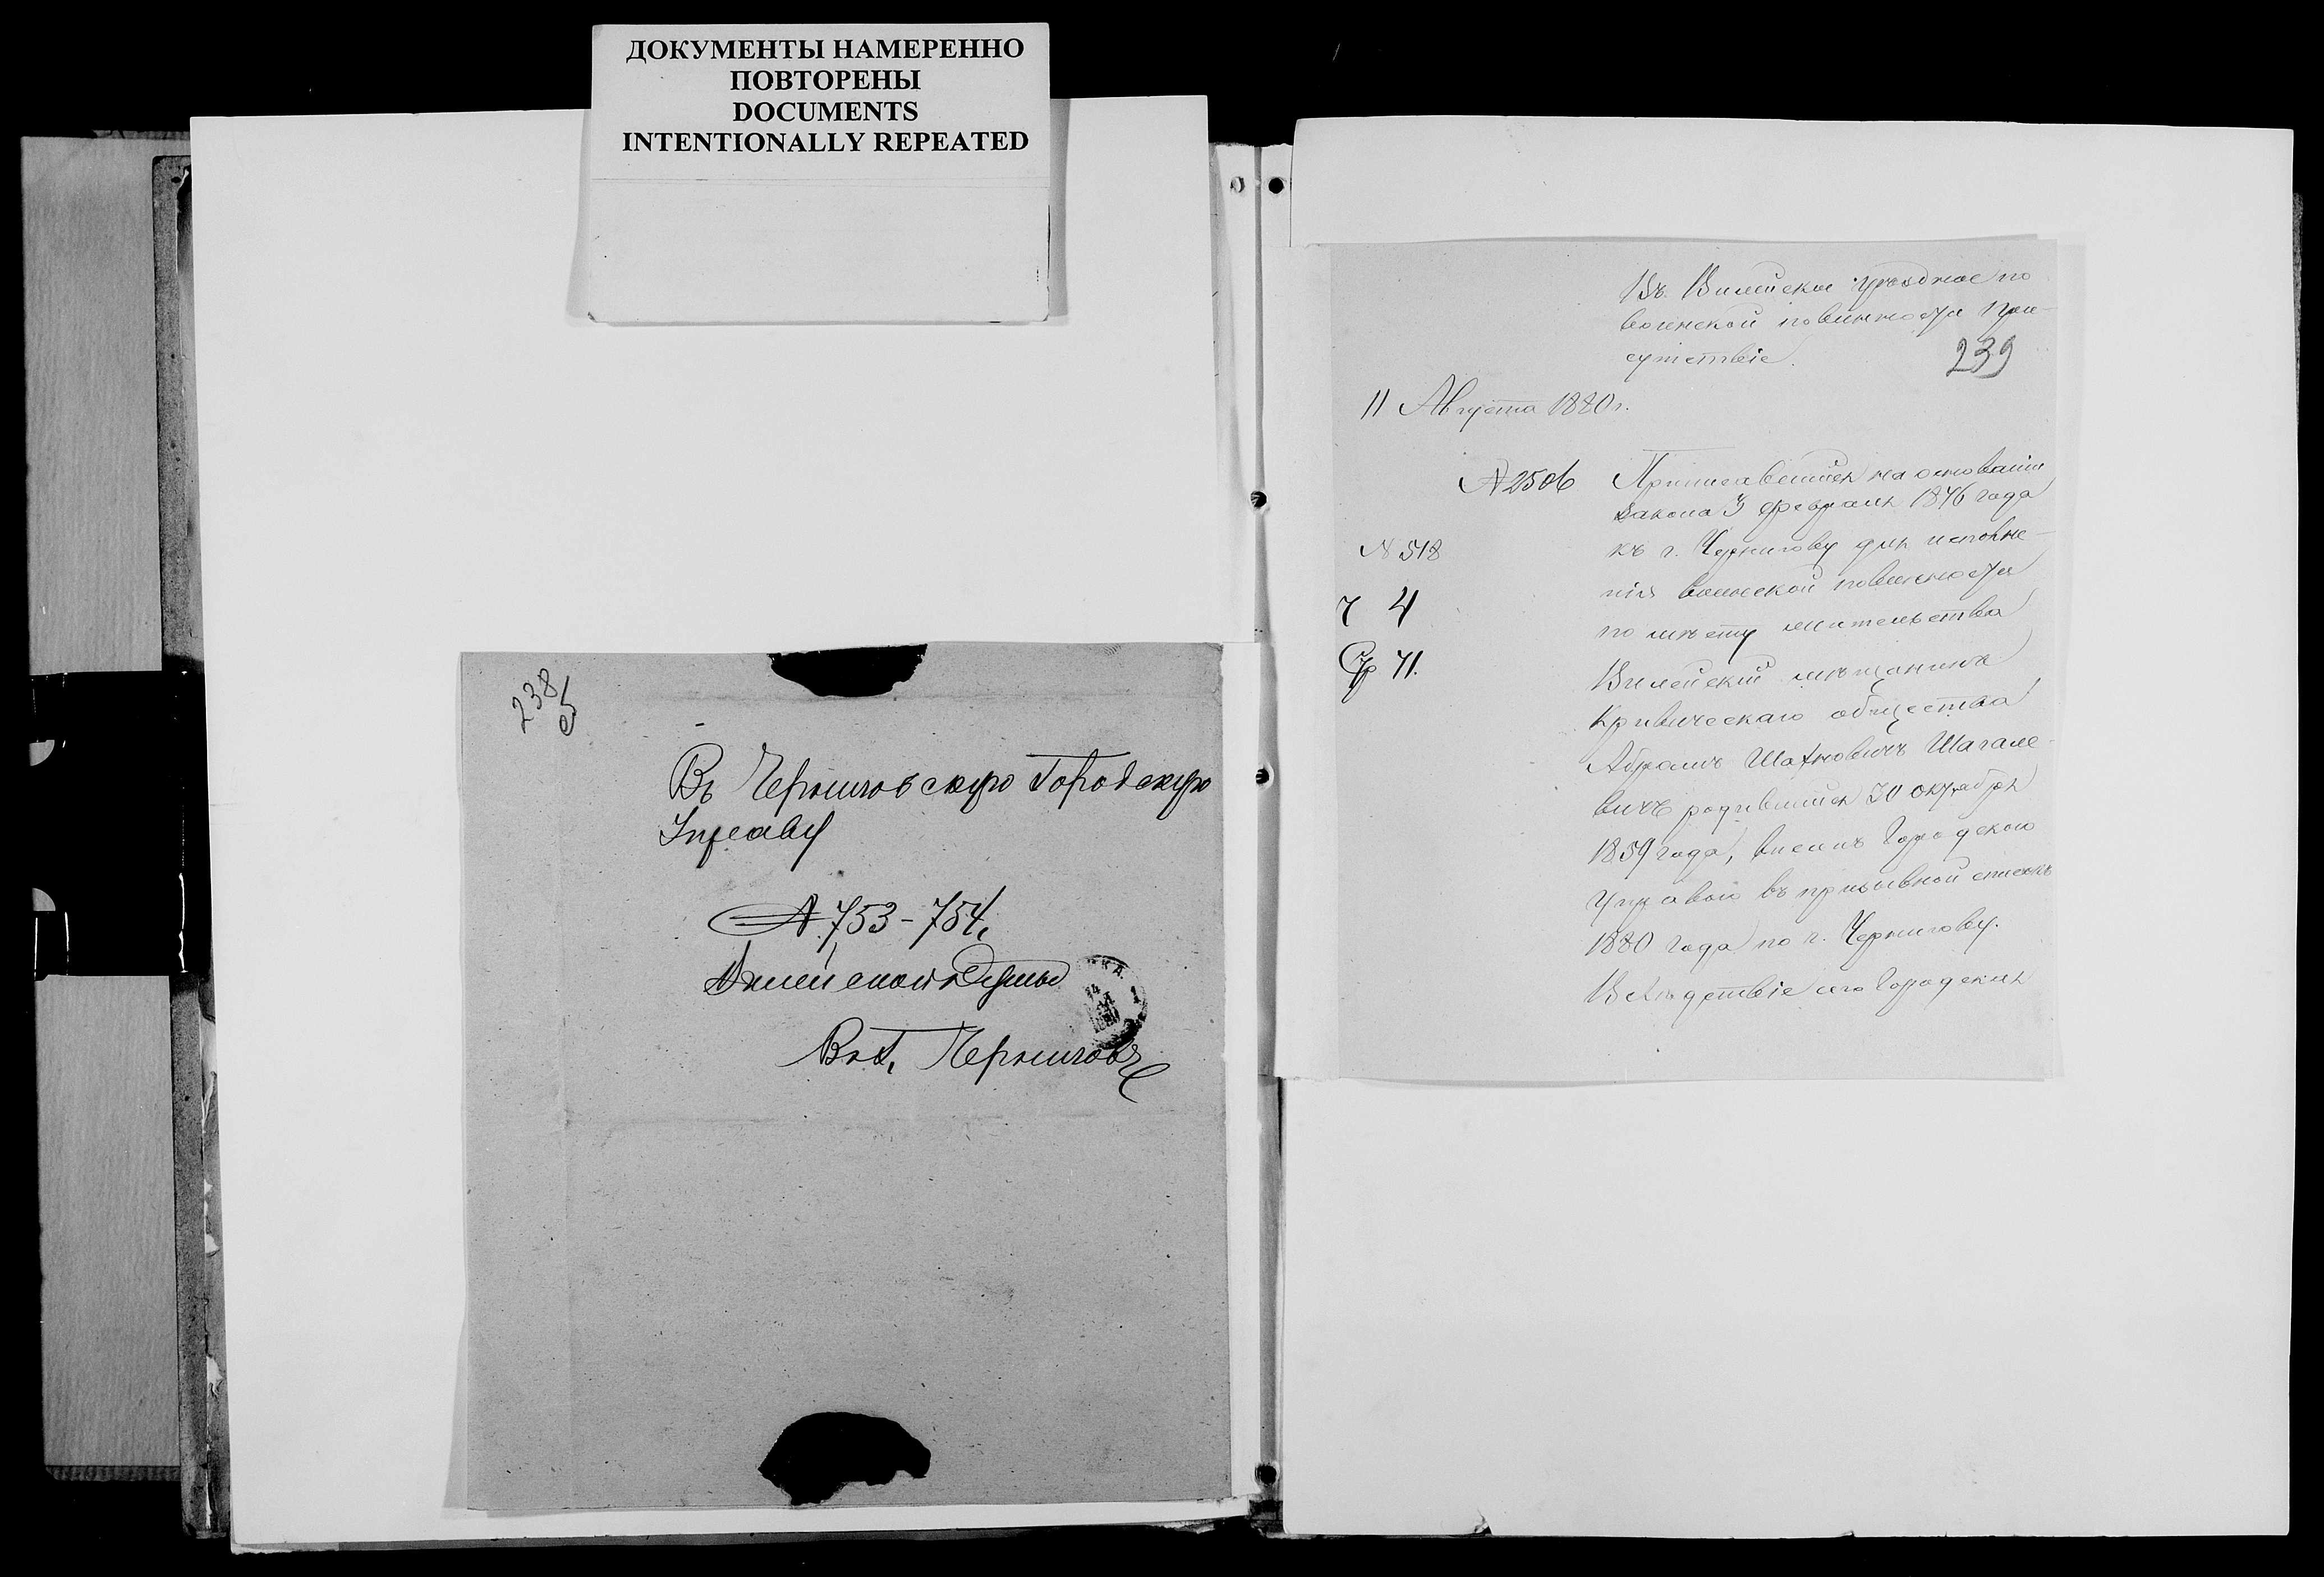 ДОКУМЕНТЫ НАМЕРЕННО
ПОВТОРЕНЫ
DOCUMENTS
INTENTIONALLY REPEATED
238
об
Въ Черниговскую Городскую
Управу
№ 753-754.
Вилейской Думы
Въ г. Черниговъ
Въ Вилейское уѣздное по
воинской повинности При-
сутствіе.
239
11 Августа 1880 г.
№ 2506
Приписавшійся на основаніи
закона 3 февраля 1876 года
№ 518
къ г. Чернигову для исполне-
нія воинской повинности
ч 4
по мѣсту жительства
Ст 71.
Вилейскій мѣщанинъ
Кривическаго общества
Абрамъ Шахновичъ Шагале-
вичъ родившійся 30 октября
1859 года, внесенъ Городскою
Управою въ призывной списокъ
1880 года по г. Чернигову.
Вслѣдствіе сего Городская